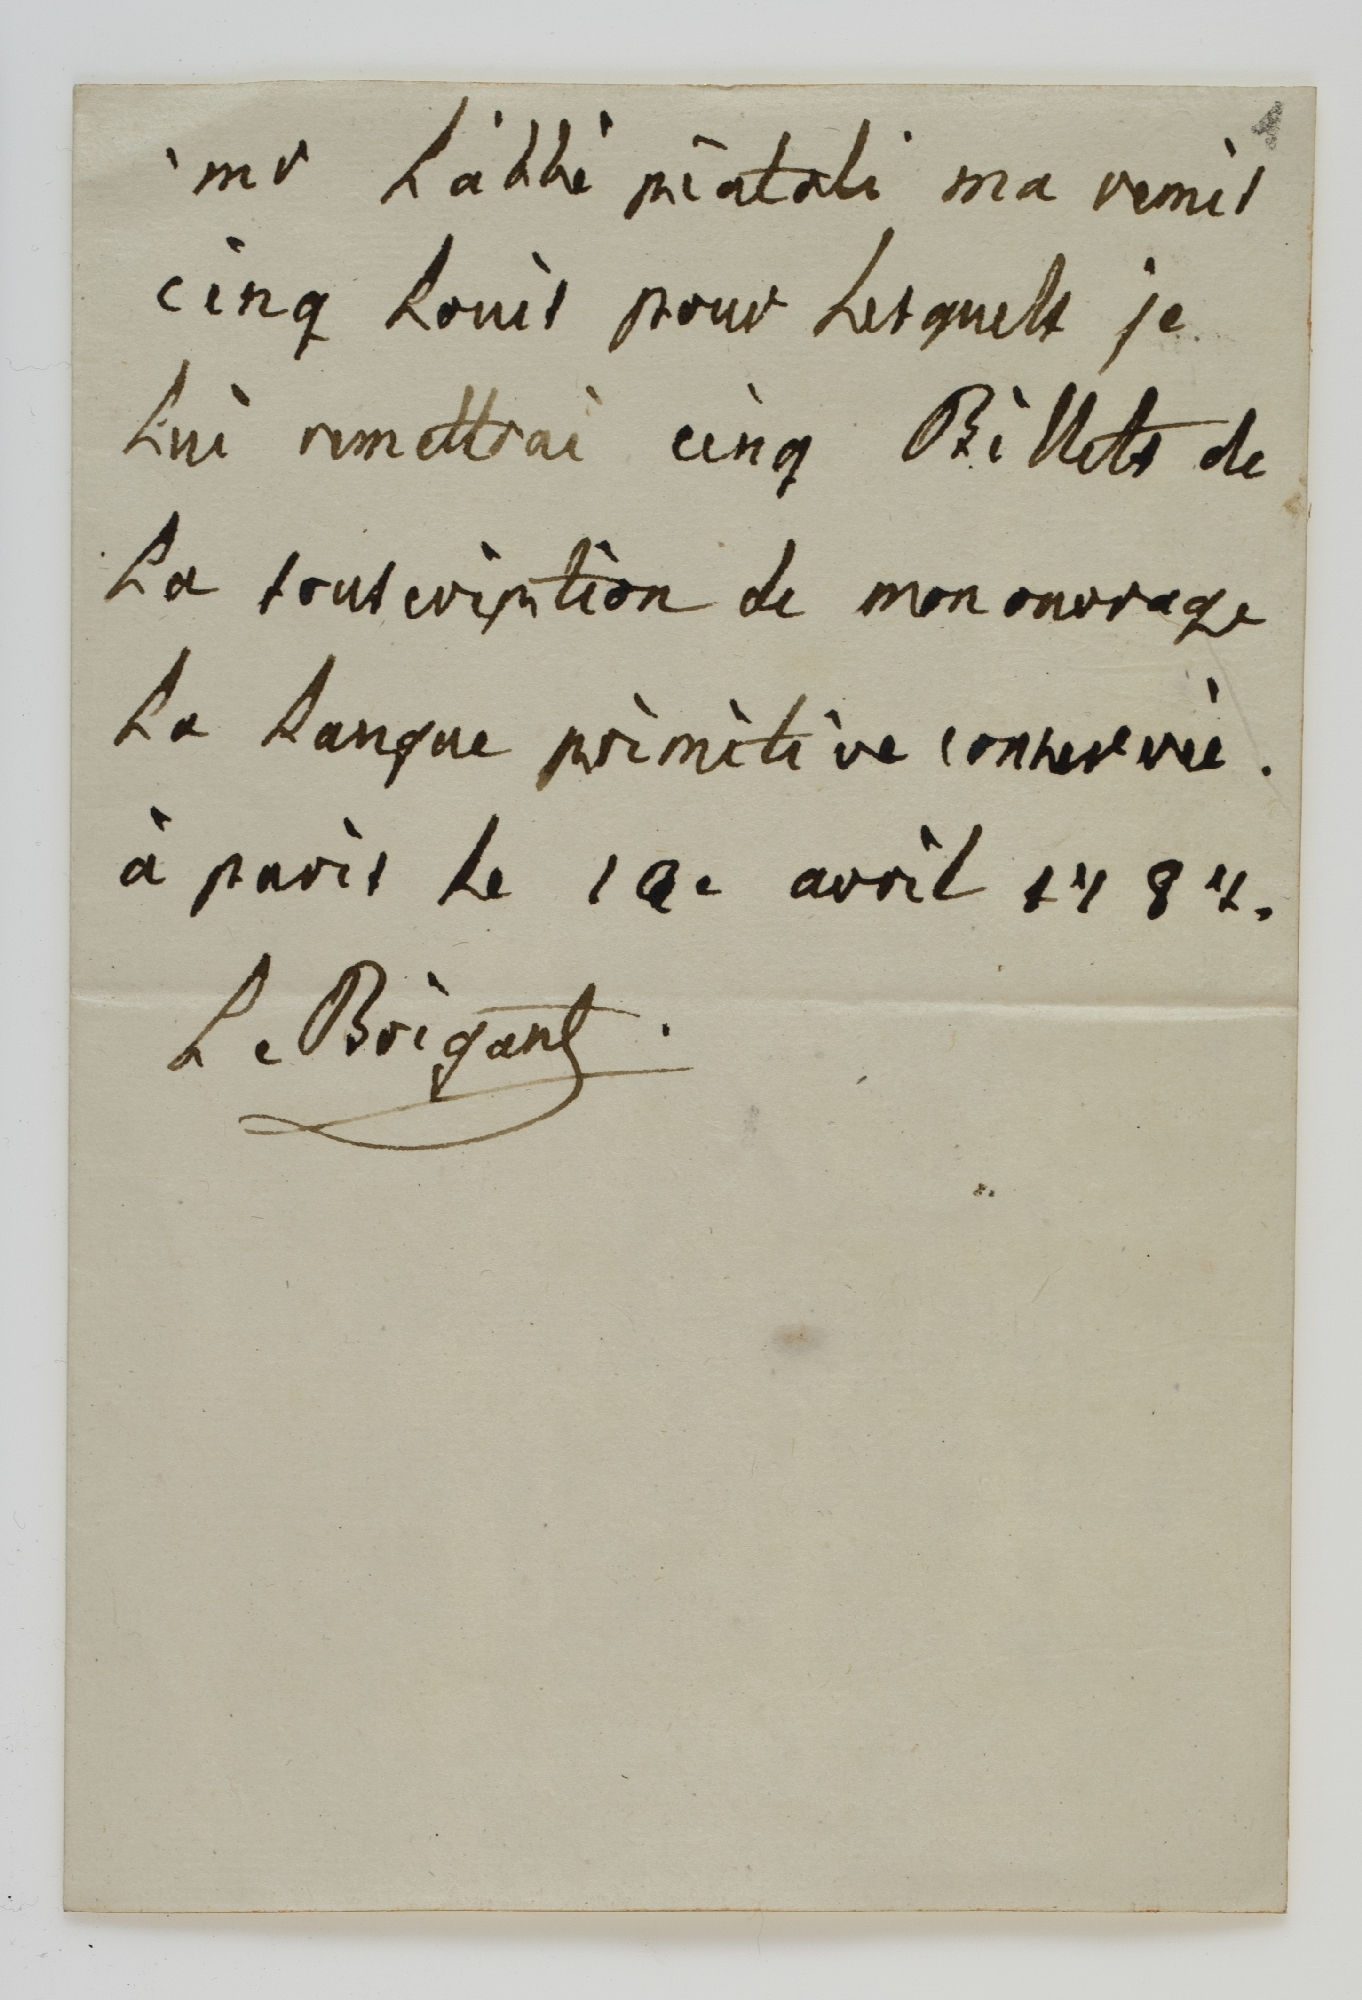 1
mr L'abbé piatoli ma remis
cinq Louis pour Lesquels je
Lui remettrai cinq Billets de
La souscription de mon ouvrage
La Langue primitive conservée.
à paris Le avril 1787.
Le Brigant.